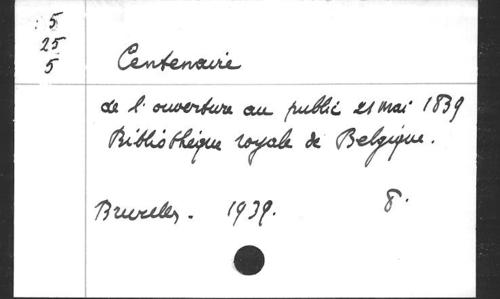 : 5
25
5
Centenaire
de l'ouverture au public 21 mai 1839
Bibliothèque royale de Belgique.
Bruxelles. 1939. 8°.